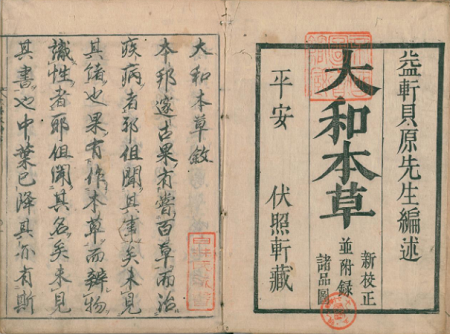 益軒貝原先生編述
大和本草
新校正
並附録
諸品圖
平安 伏照軒藏
大和本草敘
本邦邃古果有嘗百草而治
疾病者邪但聞其事矣未見
其偖也果有作本草而辨物
識性者耶但聞其名矣未見
其書也中葉已降其亦有斯